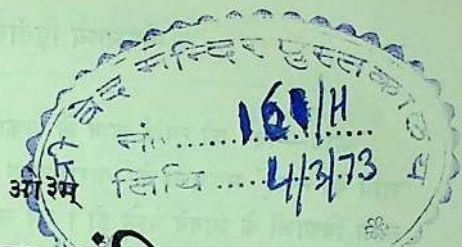 वेद मन्दिर पुस्तकालय
नं. ........ 161/H
तिथि .... 4/3/73
ओ३म्